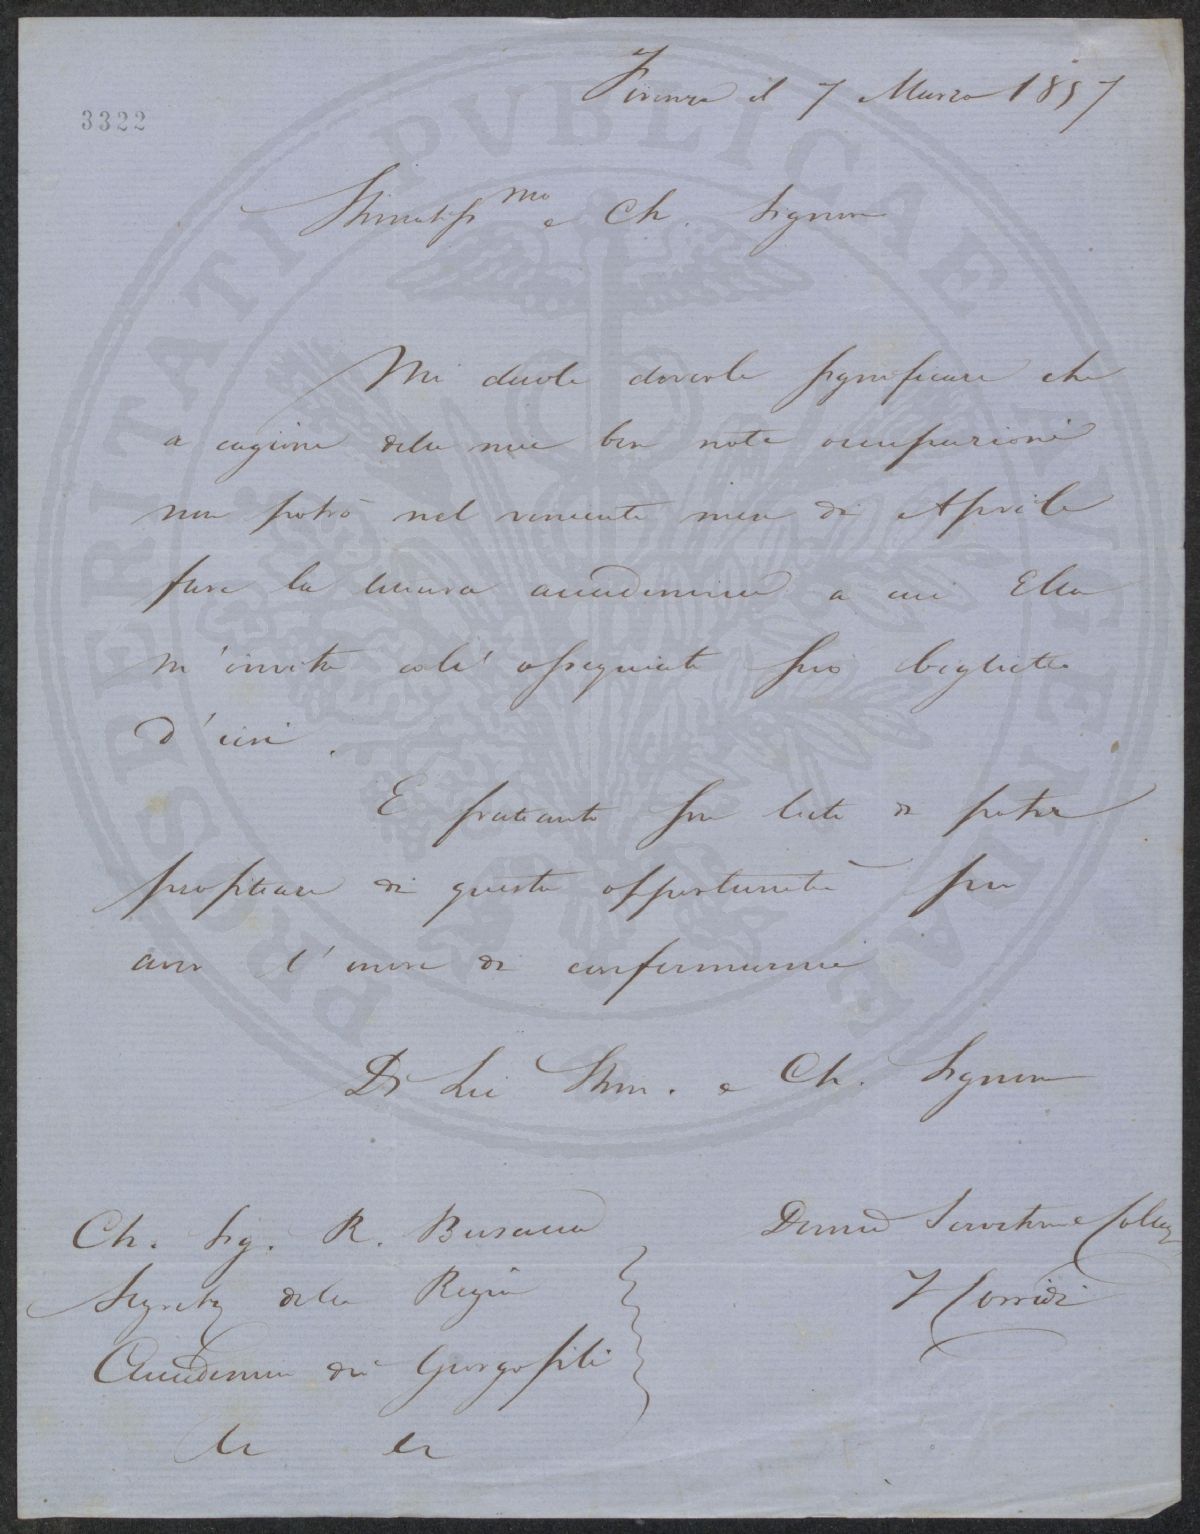 Firenze il 7 Marzo 1857
3322
Stimatiss.mo e Ch. Signore
Mi duole doverle significare che
a cagione delle mie ben note occupazioni
non potrò nel venente mese di Aprile
fare la lettura accademica a cui Ella
m'invita coll' ossequiato suo biglietto
d'ieri.
E frattanto son lieto di poter
profittare di questa opportunità per
aver l'onore di confermarmi
Di Lei Stim. e Ch. Signore
Ch. Sig. R. Busacca
Segret. della Regia
Accademia dei Georgofili
Devmo Servitore e Collega
F Corridi
PROSPERITATI PVBLICAE AVGENDAE